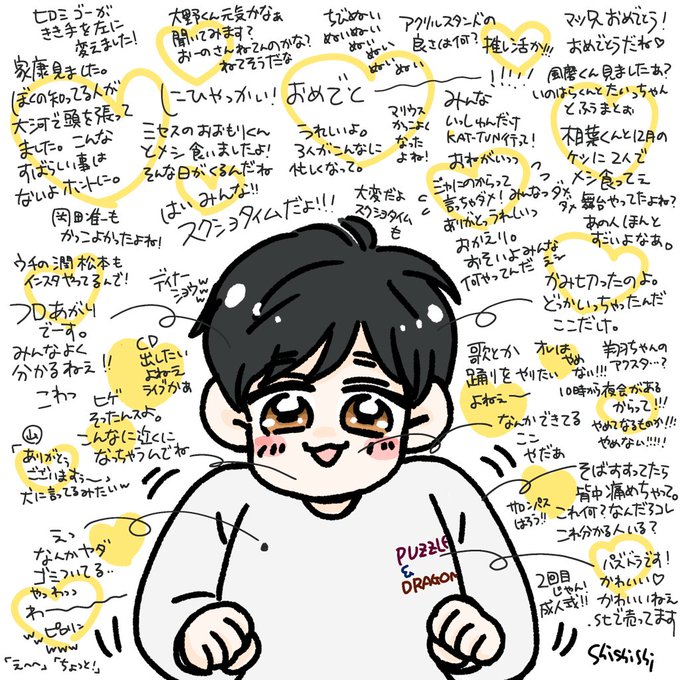 ヒロミゴーが
きき手を左に
変えました!
大野くん元気かなぁ
聞いてみます?
おーのさんねてんのかな?
ねてそうだな
ちびぬい
ぬいぬい
ぬいぬい
ぬいぬい
アクリルスタンドの
良さは何?
推し活か!!!
マッスおめでとう!
おめでとうだね♡
風磨くん見ましたぁ?
いのはらくんとたいっちゃん
とふうまとぉ
家康見ました。
ぼくの知ってる人が
大河で頭を張って
ました。こんな
すばらしい事は
ないよホントに。
岡田准一も
かっこよかったよね!
にひゃっかい!
おめでと
!!!!!
ミセスのおおもりくん
とメシ食いましたよ!
そんな日がくるんだね
うれしいよ。
3人がこんなに
忙しくなって。
マリウス
かっこよく
なったよね!
みんな
いっしゅんだけ
KAT-TUN行って!
おねがいっっ
相葉くんと12月の
ケツに2人で
メシ食ってぇ
舞台やってたよね?
あの人ほんと
すごいよなぁ。
はいみんな!!
スクショタイムだよ!!!
大変だよ
スクショタイム
も
言っちゃダメ!みんなっダメダメ
ありがとうれしいっ
おかえり。
おそいよみんなぁ〜
何やってんだ
ウチの潤 松本も
インスタやってるんで!
ディナー
ショウwww
かみ切ったのよ。
どっかいっちゃったんだ
ここだけ。
フロあがり
でーす。
みんなよく
分かるねぇ!!
こわっ
CD
出したい
よねぇ
ライブかぁ
歌とか
踊りをやりたい
よねぇ〜
オレは
やめ
ない!!!
翔ちゃんの
アフスタ…?
10時から夜会がある
からって!!!
やめてなるものか!!!
やめない!!!!!
ヒゲ
そったんスよ。
こんなに泣くに
なっちゃうんでね
なんかできてる
ここ
やだぁ
山
「ありがとう
ございますぅ〜」
犬に言ってるみたいw
そばすすってたら
背中痛めちゃって。
これ何?なんだろコレ
これ分かる人いる?
サロンパス
はろう!!
えっ
なんかヤダ
ゴミついてる..
やっわっっ
わー
ピロリン
wwwww
「え〜〜」「ちょっと!」
PUZZLE
&
DRAGON
パズドラです!
かわいい♡
かわいいねぇ
.stで売ってます
2回目
じゃん!
成人式!!
Shishishi